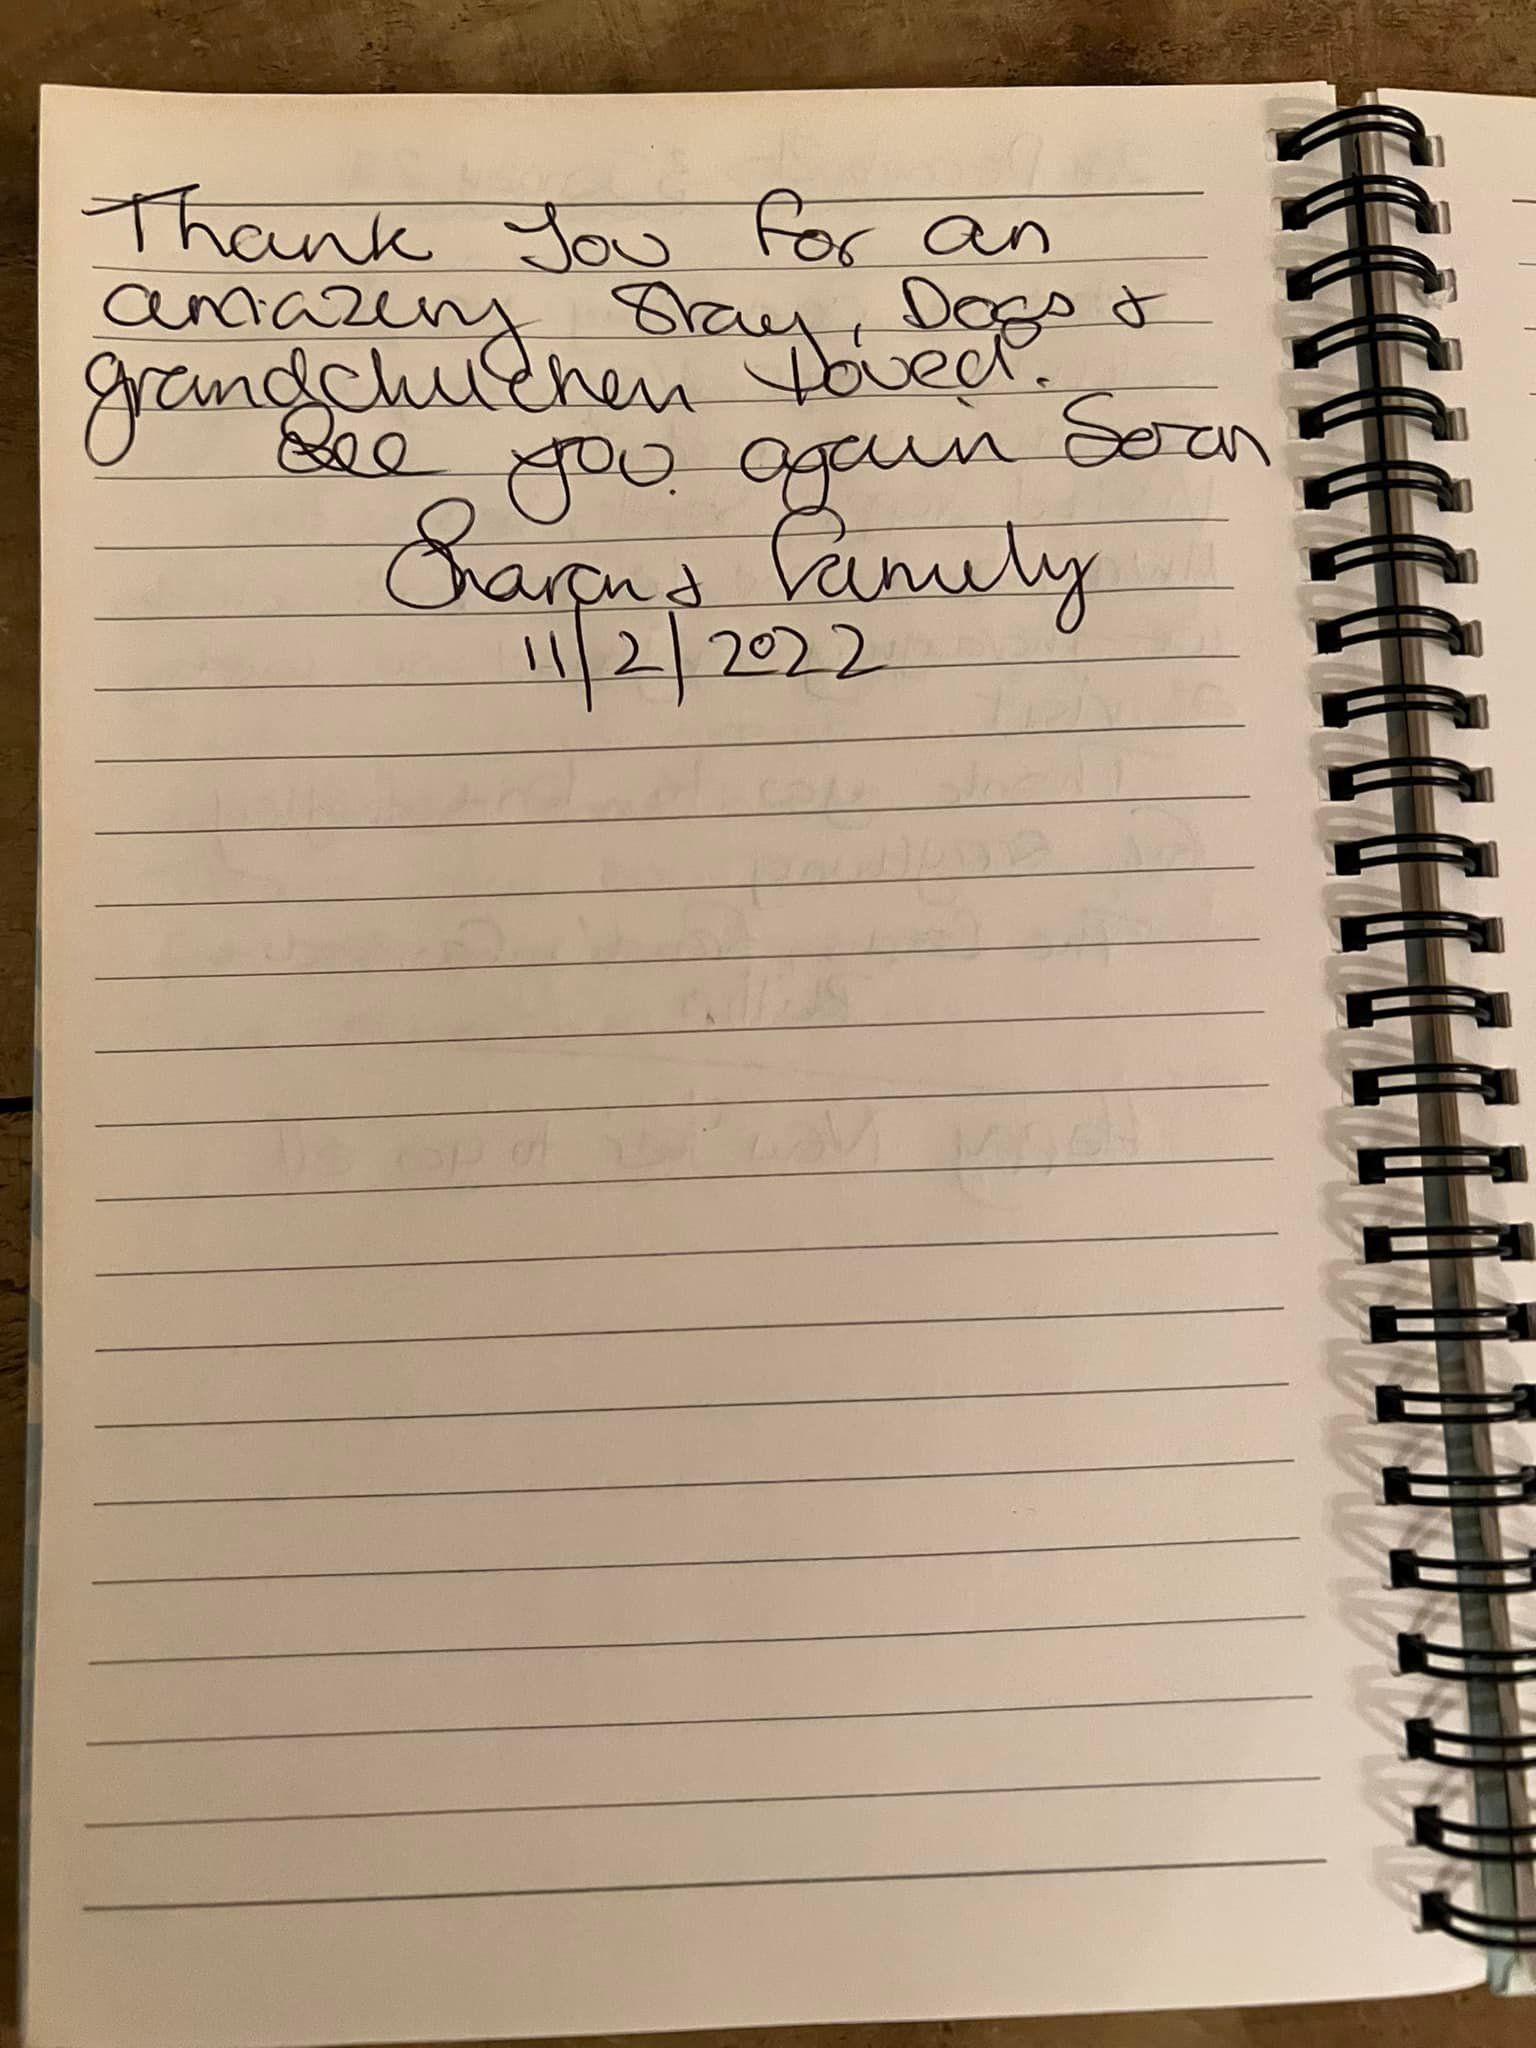 Thank You for an
amazing stay, Dogs &
grandchildren loved.
See you again Soon
Sharon & Family
11/2/2022